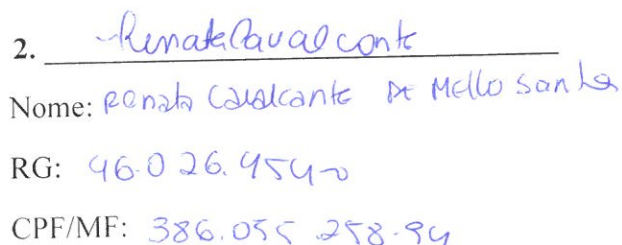 2. Renata Cavalcante
Nome: Renata Cavalcante De Mello Santos
RG: 46.026.954-0
CPF/MF: 386.055.258-94